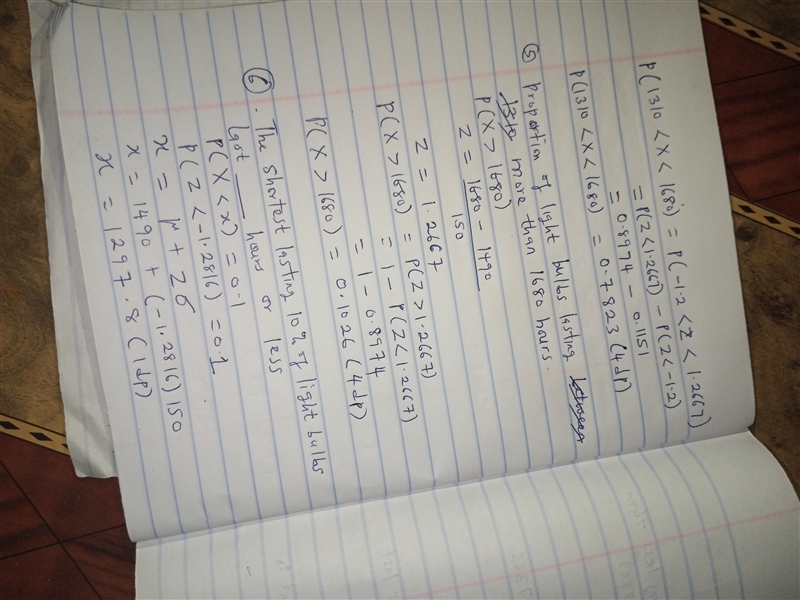 P(1310 < X < 1680) = P(-1.2 < Z < 1.2667)
= P(Z < 1.2667) - P(Z < -1.2)
= 0.8974 - 0.1151
P(1310 < X < 1680) = 0.7823 (4dp)
⑤ Proportion of light bulbs lasting between
1310 more than 1680 hours.
P(X > 1680)
Z = 1680 - 1490
150
Z = 1.2667
P(X > 1680) = P(Z > 1.2667)
= 1 - P(Z < 1.2667)
= 1 - 0.8974
P(X > 1680) = 0.1026 (4dp)
⑥. The shortest lasting 10% of light bulbs
last ___ hours or less
P(X < x) = 0.1
P(Z < -1.2816) = 0.1
x = μ + Zσ
x = 1490 + (-1.2816) 150
x = 1297.8 (1dp)